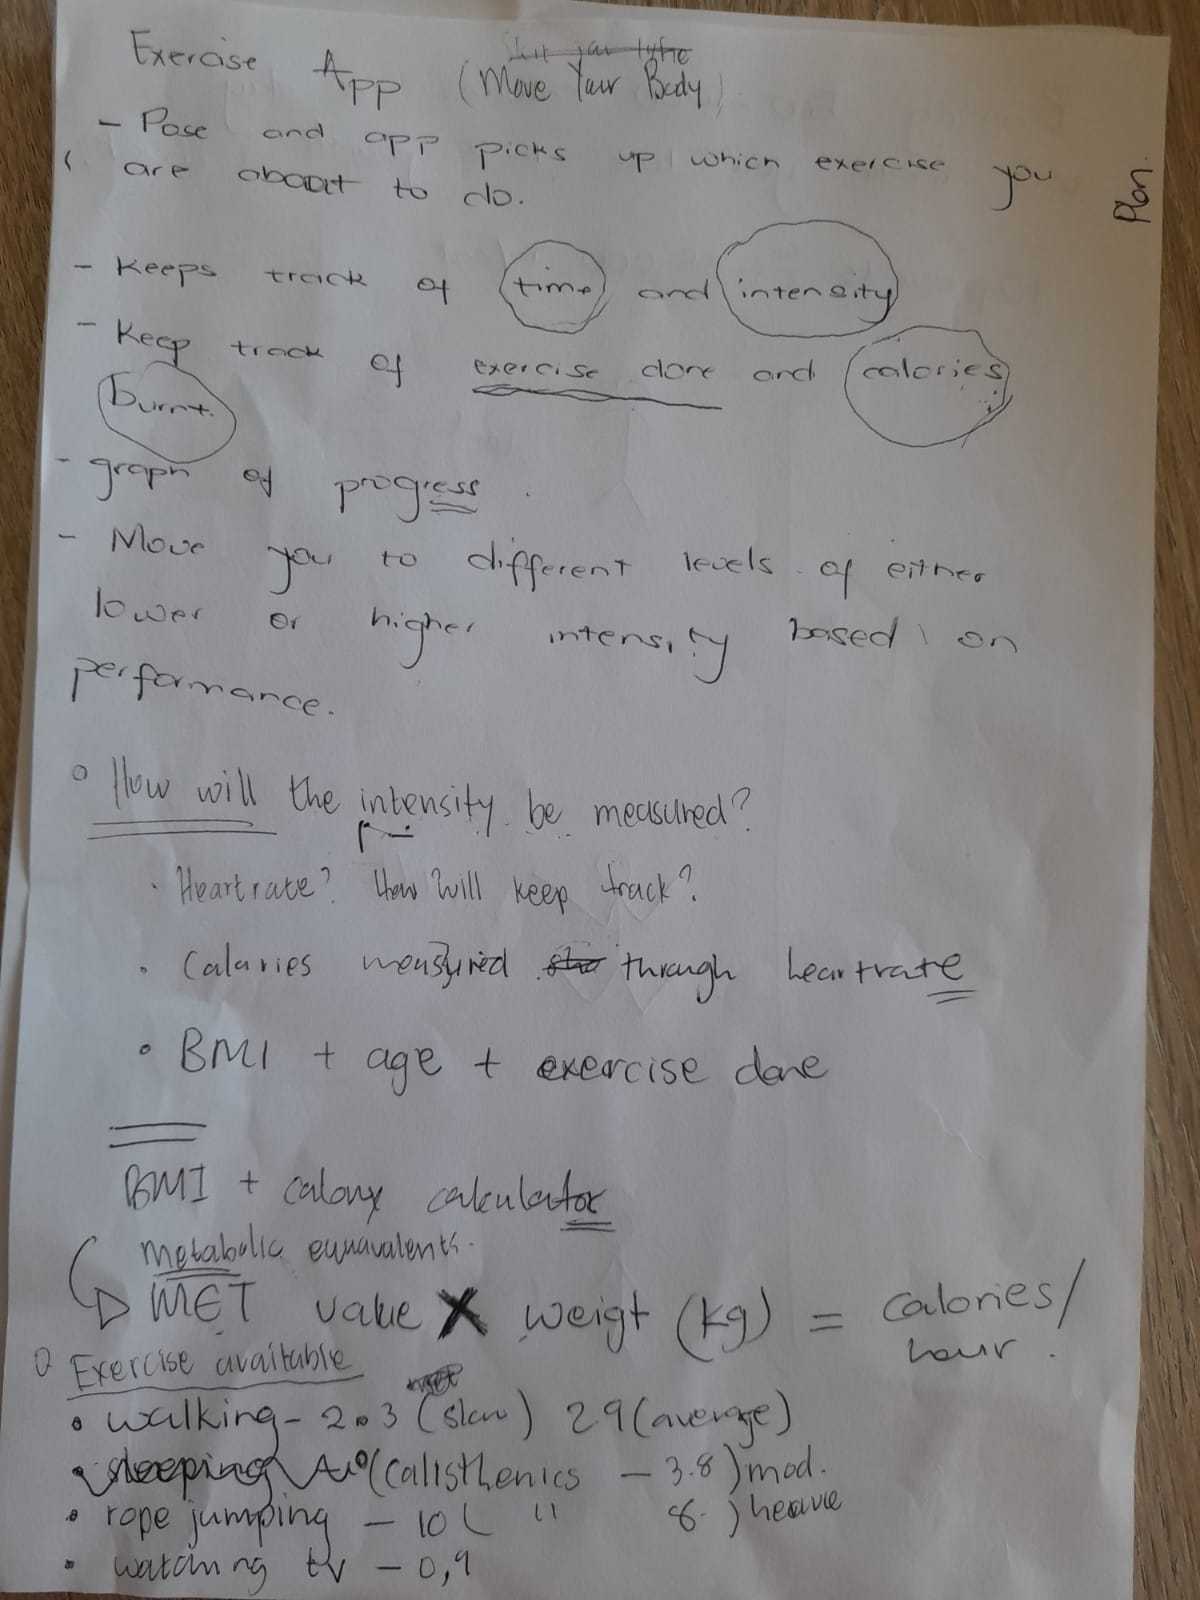 Exercise App (Move Your Body)
- Pose and app picks up which exercise you
are about to do.
Plan.
- Keeps track of time and intensity
- Keep track of exercise done and calories
burnt.
- graph of progress.
- Move you to different levels of either
lower or higher intensity based on
performance.
How will the intensity be measured?
· Heartrate? How will keep track?
• Calories measured through heartrate
• BMI + age + exercise done
BMI + calory calculator
Metabolic equavalents.
MET value X weigt (kg) = calories/
hour.
Exercise available
• walking - 2.3 (slow) 2.9 (average)
• sleeping (calisthenics - 3.8) mod.
• rope jumping - 10 ( " 8. ) heavie
• watching tv - 0,9